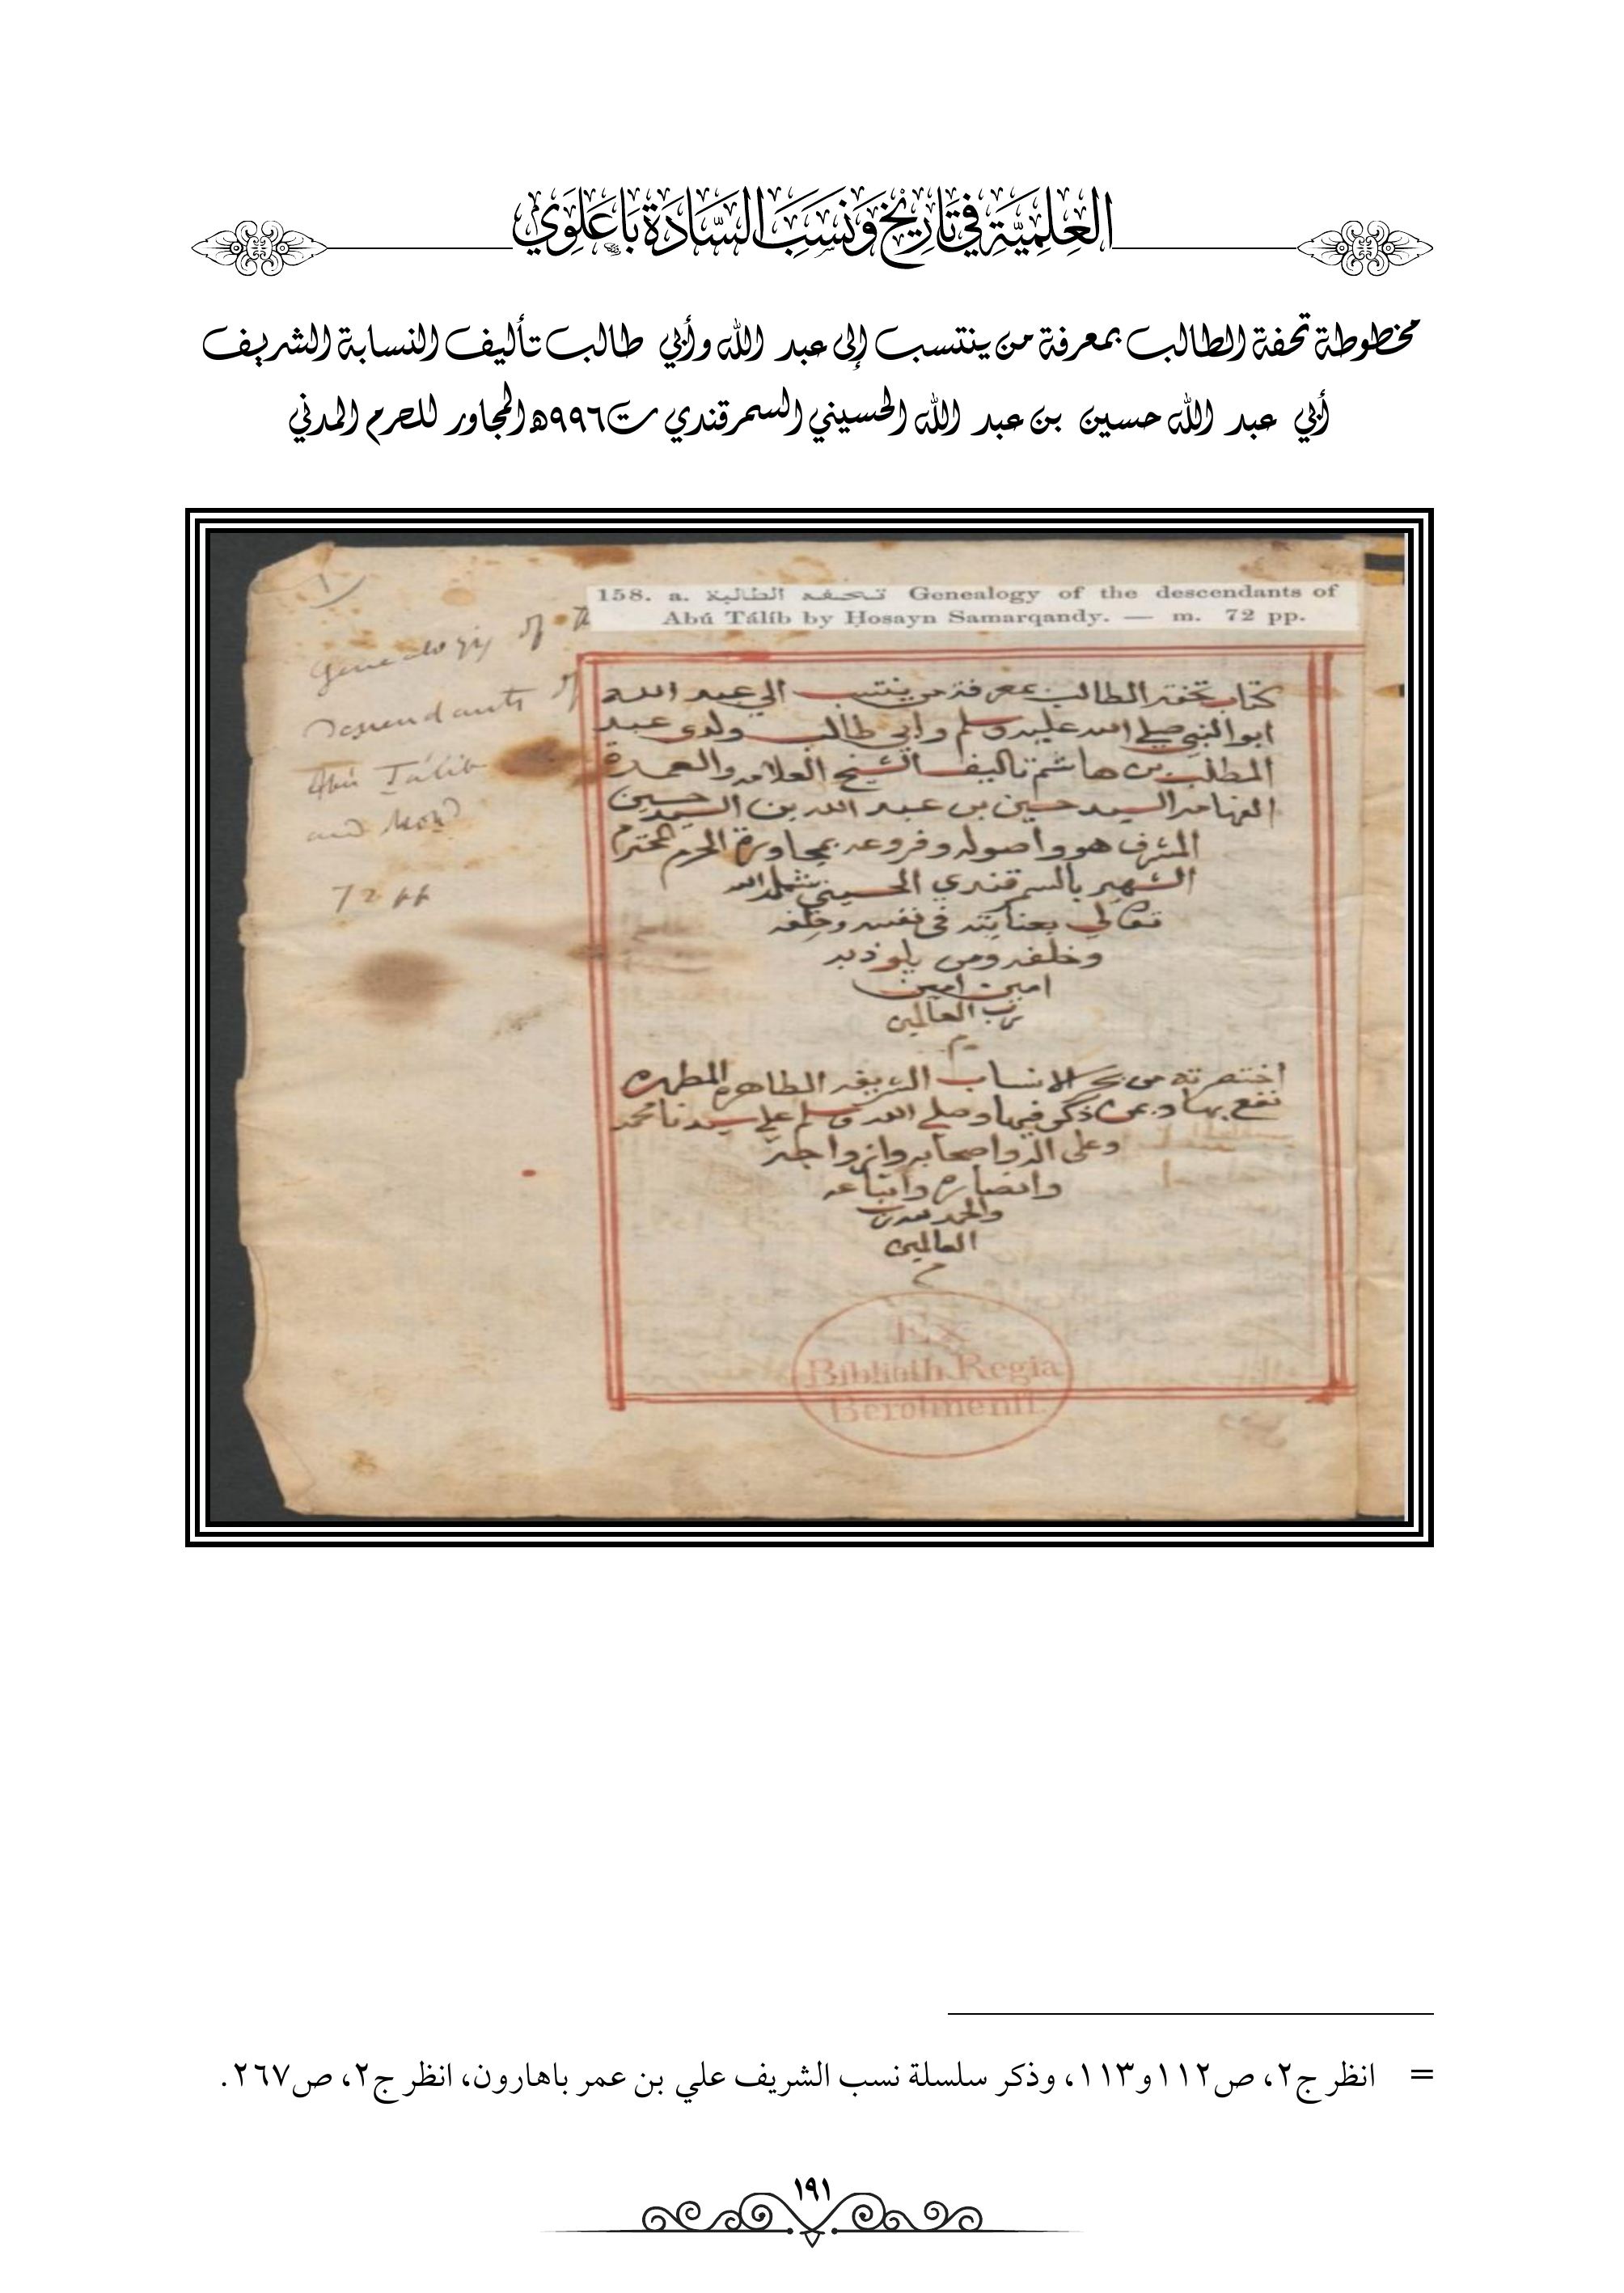 العِلمِيَّة فِي تَارِيخ وَنَسَب السَّادَة بَاعَلَوِي
مخطوطة تحفة الطالب بمعرفة من ينتسب إلى عبد الله وأبي طالب تأليف النسابة الشريف
أبي عبد الله حسين بن عبد الله الحسيني السمرقندي ت٩٩٦ه المجاور للحرم المدني
١
158. a. تحفه الطالبة Genealogy of the descendants of
Abú Tálib by Ḥosayn Samarqandy. — m. 72 pp.
Genealogy of
Descendants of
Abú Tálib
and
72 pp
كتاب تحفة الطالب بمعرفة من ينتسب الي عبد الله
ابو النبي صلي الله عليه وسلم وابي طالب ولدي عبد
المطلب بن هاشم تاليف الشيخ العلامه والعمدة
الفهامه السيد حسين بن عبد الله بن السيد حسين
المشرف هو واصوله وفروعه بمجاورة الحرم المحترم
الشهير بالسمرقندي الحسيني شمله الله
تعالي بعنايته في نفسه وخلفه
وخلفه ومن يلوذ به
امين امين
يرب العالمين
م
اختصرته من بحر الانساب الشريفه الطاهرة المطهره
نفع بها وبمن ذكر فيها وصلي الله وسلم علي سيدنا محمد
وعلى اله واصحابه وازواجه
وانصاره واتباعه
والحمد لله رب
العالمين
م
Ex
Biblioth. Regia
Berolinenſi.
= انظر ج٢، ص١١٢و١١٣، وذكر سلسلة نسب الشريف علي بن عمر باهارون، انظر ج٢، ص٢٦٧.
١٩١